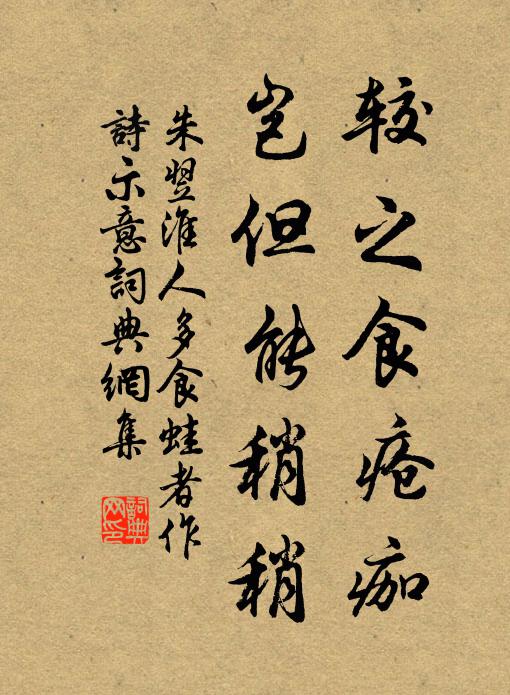 較之食瘡痂
豈但能稍稍
朱翌淮人多食蛙者作
詩示意詞典網集
詞典
网印